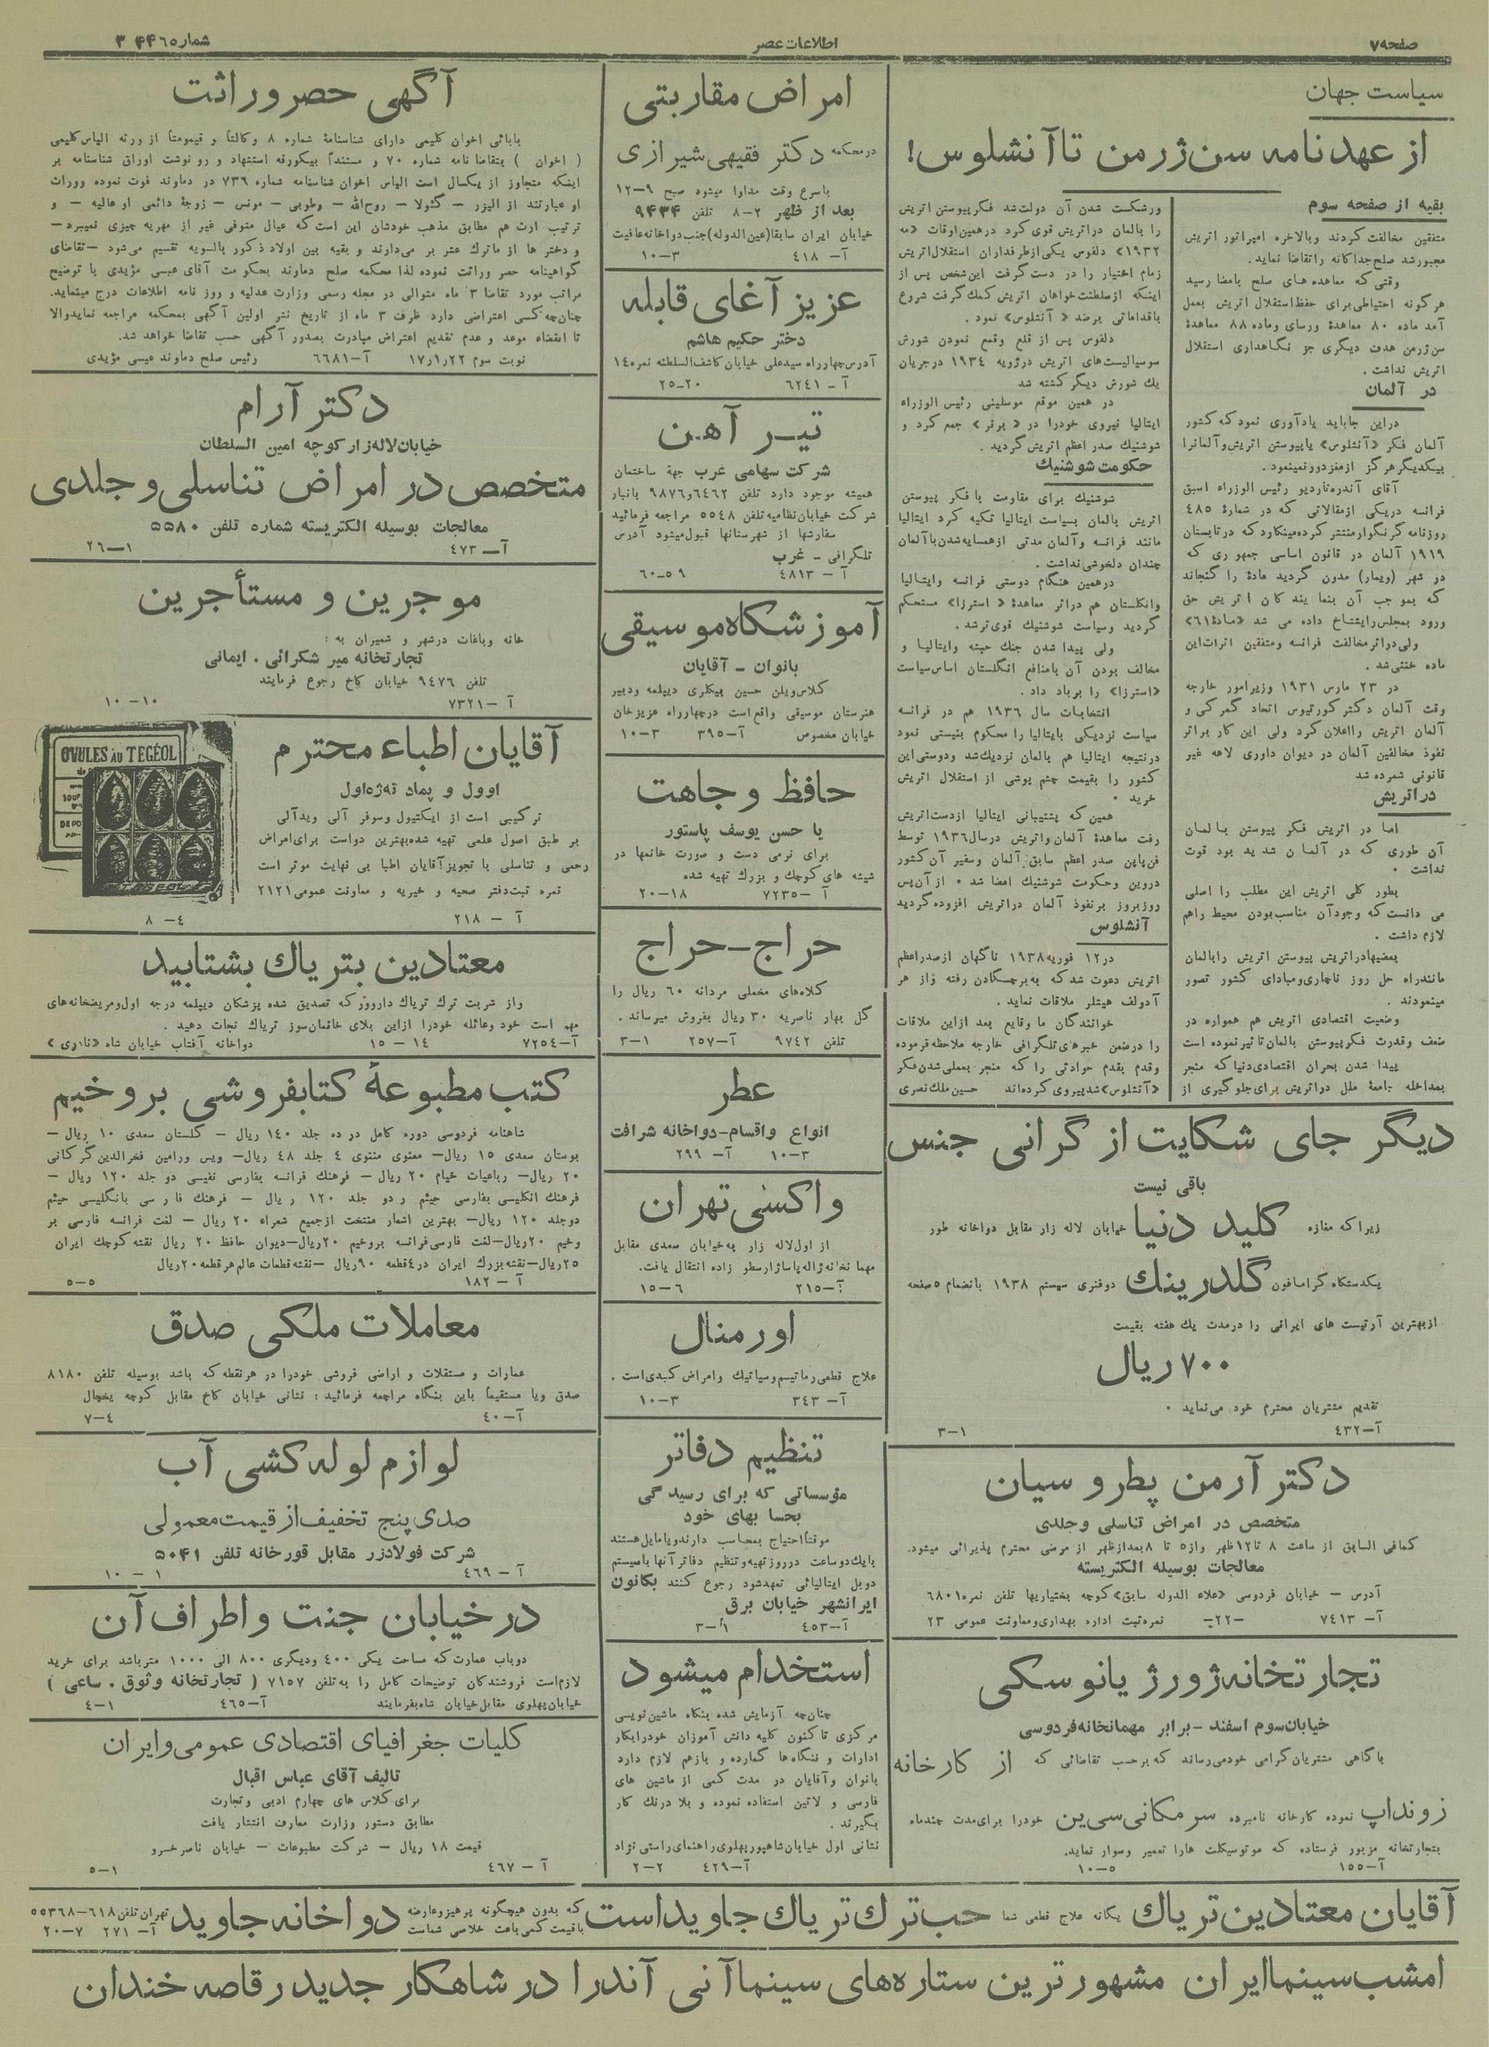 صفحه ۷۹
اطلاعات عصر
شماره ۳۴۴۶۵
سیاست جهان
از عهدنامه سن‌ژرمن تا آنشلوس!
بقیه از صفحه سوم
متفقین مخالفت کردند وبالاخره امپراتور اتریش
مجبورشد صلح جداگانه را تقاضا نماید.
وقتی که معاهده های صلح بامضا رسید
هر گونه احتیاطی برای حفظ استقلال اتریش بعمل
آمد ماده ۸۰ معاهدهٔ ورسای وماده ۸۸ معاهدهٔ
سن‌ژرمن هدف دیگری جز نگاهداری استقلال
اتریش نداشت.
در آلمان
دراین جا باید یادآوری نمود که کشور
آلمان فکر «آنشلوس» یا پیوستن اتریش و آلمانرا
بیکدیگر هرگز از مغز دور نمینمود.
آقای آندره تاردیو رئیس الوزراء اسبق
فرانسه دریکی ازمقالاتی که در شمارهٔ ۴۸۵
روزنامه گرنگوار منتشر کرده مینگارد که درتابستان
۱۹۱۹ آلمان در قانون اساسی جمهوری که
در شهر (ویمار) مدون گردید مادهٔ را گنجاند
که بموجب آن بنمایندگان اتریش حق
ورود بمجلس رایشتاخ داده می شد «مادهٔ ۶۱»
ولی دراثر مخالفت فرانسه ومتفقین اثرات این
ماده خنثی شد.
در ۲۳ مارس ۱۹۳۱ وزیر امور خارجه
وقت آلمان دکتر کورتیوس اتحاد گمرکی و
آلمان اتریش را اعلان کرد ولی این کار براثر
نفوذ مخالفین آلمان در دیوان داوری لاهه غیر
قانونی شمرده شد
در اتریش
اما در اتریش فکر پیوستن بآلمان
آن طوری که در آلمان شدید بود قوت
نداشت.
بطور کلی اتریش این مطلب را اصلی
می دانست که وجود آن مناسب بودن محیط را هم
لازم داشت.
بعضیها در اتریش پیوستن اتریش را بآلمان
مانند راه حل روز ناچاری و مبادای کشور تصور
مینمودند.
وضعیت اقتصادی اتریش هم همواره در
ضعف وقدرت فکر پیوستن بآلمان تاثیر نموده است
پیدا شدن بحران اقتصادی دنیا که منجر
بمداخله جامعهٔ ملل در اتریش برای جلوگیری از
ورشکست شدن آن دولت شد فکر پیوستن اتریش
را بآلمان دراتریش قوی کرد درهمین اوقات «مه
۱۹۳۲» دلفوس یکی از طرفداران استقلال اتریش
زمام اختیار را در دست گرفت این شخص پس از
اینکه از سلطنت خواهان اتریش کمک گرفت شروع
باقداماتی برضد «آنشلوس» نمود.
دلفوس پس از قلع وقمع نمودن شورش
سوسیالیست های اتریش در ژویه ۱۹۳۴ درجریان
یک شورش دیگر کشته شد
در همین موقع موسلینی رئیس الوزراء
ایتالیا نیروی خودرا در «برنر» جمع کرد و
شوشنیک صدر اعظم اتریش گردید.
حکومت شوشنیک
شوشنیک برای مقاومت با فکر پیوستن
اتریش بآلمان بسیاست ایتالیا تکیه کرد ایتالیا
مانند فرانسه وآلمان مدتی از همسایه شدن با آلمان
چندان دلخوشی نداشت.
درهمین هنگام دوستی فرانسه وایتالیا
وانگلستان هم دراثر معاهدهٔ «استرزا» مستحکم
گردید وسیاست شوشنیک قوی تر شد.
ولی پیدا شدن جنک حبشه وایتالیا و
مخالف بودن آن بامنافع انگلستان اساس سیاست
«استرزا» را برباد داد.
انتخابات سال ۱۹۳۶ هم در فرانسه
سیاست نزدیکی بایتالیا را محکوم بنیستی نمود
درنتیجه ایتالیا هم بآلمان نزدیک شد ودوستی این
کشور را بقیمت چشم پوشی از استقلال اتریش
خرید.
همین که پشتیبانی ایتالیا ازدست اتریش
رفت معاهدهٔ آلمان واتریش درسال ۱۹۳۶ توسط
فن پاپن صدر اعظم سابق آلمان وسفیر آن کشور
دروین وحکومت شوشنیک امضا شد. از آن پس
روزبروز بر نفوذ آلمان در اتریش افزوده گردید
آنشلوس
در ۱۲ فوریه ۱۹۳۸ ناگهان از صدر اعظم
اتریش دعوت شد که به برچسگادن رفته و از هر
آدولف هیتلر ملاقات نماید.
خوانندگان ما وقایع بعد ازاین ملاقات
را درضمن خبرهای تلگرافی خارجه ملاحظه فرموده
وقدم بقدم حوادثی را که منجر بعملی شدن فکر
«آنشلوس» شد پیروی کرده‌اند حسین ملک نصری
دیگر جای شکایت از گرانی جنس
باقی نیست
زیرا که مغازه کلید دنیا خیابان لاله زار مقابل دواخانه طور
یکدستگاه گرامافون گلدرینک دوفنری سیستم ۱۹۳۸ بانضمام ۵ صفحه
ازبهترین آرتیست های ایرانی را درمدت یک هفته بقیمت
۷۰۰ ریال
تقدیم مشتریان محترم خود می‌نماید.
آ–۴۳۲ ۱–۳
دکتر آرمن پطروسیان
متخصص در امراض تناسلی وجلدی
کمافی السابق از ساعت ۸ تا ۱۲ ظهر واز ۵ تا ۸ بعدازظهر از مرضی محترم پذیرائی میشود.
معالجات بوسیله الکتریسته
آدرس – خیابان فردوسی «علاء الدوله سابق» کوچه بختیاریها تلفن نمره ۶۸۰۱
آ– ۷۴۱۳ –۲۲– نمره ثبت اداره بهداری ومعاونت عمومی ۲۳
تجارتخانه ژورژ یانوسکی
خیابان سوم اسفند – برابر مهمانخانه فردوسی
با گاهی مشتریان گرامی خود می رساند که برحسب تقاضائی که از کارخانه
زونداپ نموده کارخانه نامبرده سرمکانی سی ین خودرا برای مدت چند ماه
بتجارتخانه مزبور فرستاده که موتوسیکلت هارا تعمیر وسوار نماید.
آ–۱۵۵ ۵–۱۰
امراض مقاربتی
درمحکمه دکتر فقیهی شیرازی
باسرع وقت مداوا میشود صبح ۹–۱۲
بعد از ظهر ۲–۸ تلفن ۹۴۳۴
خیابان ایران سابقا (عین الدوله) جنب دواخانه عافیت
آ– ۴۱۸ ۳–۱۰
عزیز آغای قابله
دختر حکیم هاشم
آدرس چهارراه سیدعلی خیابان کاشف السلطنه نمره ۱۴
آ – ۶۲۴۱ ۲۰–۲۵
تیر آهن
شرکت سهامی غرب جهة ساختمان
همیشه موجود دارد تلفن ۶۴۶۲ و ۹۸۷۶ بانبار
شرکت خیابان نظامیه تلفن ۵۵۴۸ مراجعه فرمائید
سفارشها از شهرستانها قبول میشود آدرس
تلگرافی – غرب
آ – ۴۸۱۳ ۵۹–۶۰
آموزشگاه موسیقی
بانوان – آقایان
کلاس ویلن حسین پیکلری دیپلمه ودبیر
هنرستان موسیقی واقع است درچهارراه عزیز خان
خیابان مخصوص آ–۳۹۵ ۳–۱۰
حافظ وجاهت
یا حسن یوسف پاستور
برای نرمی دست و صورت خانمها در
شیشه های کوچک و بزرگ تهیه شده
آ –۷۲۳۵ ۱۸–۲۰
حراج–حراج
کلاه‌های مخملی مردانه ۶۰ ریال را
گل بهار ناصریه ۳۰ ریال بفروش میرساند.
تلفن ۹۷۴۲ آ–۲۵۷ ۱–۳
عطر
انواع واقسام–دواخانه شرافت
آ– ۲۹۹ ۳–۱۰
واکسی تهران
از اول لاله زار به خیابان سعدی مقابل
مهمانخانه ژاله پاساژ ارسطو زاده انتقال یافت.
آ–۲۱۵ ۶–۱۵
اورمنال
علاج قطعی رماتیسم وسیاتیک وامراض کبدی است.
آ– ۳۴۳ ۳–۱۰
تنظیم دفاتر
مؤسساتی که برای رسیدگی
بحسابهای خود
موقتاً احتیاج بمحاسب دارند ویا مایل هستند
با یک دو ساعت درروز تهیه وتنظیم دفاتر آنها با سیستم
دوبل ایتالیائی تعهد شود رجوع کنند بکانون
ایرانشهر خیابان برق
آ–۴۵۳ ۱–۳
استخدام میشود
چنان‌چه آزمایش شده بنگاه ماشین نویسی
مرکزی تا کنون کلیه دانش آموزان خودرا بکار
ادارات و بنگاه‌ها گمارده و بازهم لازم دارد
بانوان وآقایان در مدت کمی از ماشین های
فارسی و لاتین استفاده نموده و بلا درنک کار
بگیرند.
نشانی اول خیابان شاهپور پهلوی راهنمای راستی نژاد
آ–۴۲۹ ۲–۲
آگهی حصر وراثت
بابائی اخوان کلیمی دارای شناسنامهٔ شماره ۸ وکالتاً و قیمومتاً از ورثه الیاس کلیمی
(اخوان) بتقاضا نامه شماره ۷۰ و مستنداً بیکورقه استشهاد و رونوشت اوراق شناسنامه بر
اینکه متجاوز از یکسال است الیاس اخوان شناسنامه شماره ۷۳۹ در دماوند فوت نموده ووراث
او عبارتند از الیزر – گئولا – روح‌الله – وطوبی – مونس – زوجهٔ دائمی او عالیه – و
ترتیب ارث هم مطابق مذهب خودشان این است که عیال متوفی غیر از مهریه چیزی نمیبرد–
و دختر ها از ماترک عشر بر می‌دارند و بقیه بین اولاد ذکور بالسویه تقسیم می‌شود – تقاضای
گواهینامه حصر وراثت نموده لذا محکمه صلح دماوند بحکومت آقای عیسی مؤیدی با توضیح
مراتب مورد تقاضا ۳ ماه متوالی در مجله رسمی وزارت عدلیه و روز نامه اطلاعات درج مینماید.
چنان‌چه کسی اعتراضی دارد ظرف ۳ ماه از تاریخ نشر اولین آگهی بمحکمه مراجعه نماید والا
تا انقضاء موعد و عدم تقدیم اعتراض مبادرت بصدور آگهی حسب تقاضا خواهد شد.
نوبت سوم ۱۷ر۱ر۲۲ آ–۶۶۸۱ رئیس صلح دماوند عیسی مؤیدی
دکتر آرام
خیابان لاله زار کوچه امین السلطان
متخصص در امراض تناسلی و جلدی
معالجات بوسیله الکتریسته شماره تلفن ۵۵۸۰
آ– ۴۷۳ ۱–۲۶
موجرین و مستأجرین
خانه وباغات درشهر و شمیران به:
تجارتخانه میر شکرائی . ایمانی
تلفن ۹۴۷۶ خیابان کاخ رجوع فرمایند
آ –۷۳۲۱ ۱۰–۱۰
OVULES AU TEGÉOL
آقایان اطباء محترم
اوول و پماد تـه‌ژه‌اول
ترکیبی است از ایکتیول وسوفر آلی ویدآلی
بر طبق اصول علمی تهیه شده بهترین دواست برای امراض
رحمی و تناسلی با تجویز آقایان اطبا بی نهایت موثر است
نمره ثبت دفتر صحیه و خیریه و معاونت عمومی ۲۱۲۱
آ – ۲۱۸ ۴– ۸
معتادین بتریاک بشتابید
واز شربت ترک تریاک داروژ که تصدیق شده پزشکان دیپلمه درجه اول ومریضخانه‌های
مهم است خود وعائله خودرا ازاین بلای خانمان‌سوز تریاک نجات دهید.
آ–۷۲۵۴ ۱۴ – ۱۵ دواخانه آفتاب خیابان شاه «نادری»
کتب مطبوعهٔ کتابفروشی بروخیم
شاهنامه فردوسی دوره کامل در ده جلد ۱۴۰ ریال – گلستان سعدی ۱۰ ریال–
بوستان سعدی ۱۵ ریال– معنوی مثنوی ۴ جلد ۴۸ ریال– ویس ورامین فخرالدین گرگانی
۲۰ ریال– رباعیات خیام ۲۰ ریال – فرهنک فرانسه بفارسی نفیسی دو جلد ۱۲۰ ریال –
فرهنک انگلیسی بفارسی حیثم ردو جلد ۱۲۰ ریال – فرهنک فارسی بانگلیسی حیثم
دوجلد ۱۲۰ ریال– بهترین اشعار منتخب ازجمیع شعراء ۲۰ ریال – لغت فرانسه فارسی بر
وخیم ۲۰ ریال–لغت فارسی فرانسه بروخیم ۲۰ ریال–دیوان حافظ ۲۰ ریال نقشه کوچک ایران
۲۵ ریال–نقشه بزرک ایران در ۴ قطعه ۹۰ ریال –نقشه قطعات عالم هر قطعه ۲۰ ریال
آ – ۱۸۲ ۵–۵
معاملات ملکی صدق
عمارات و مستقلات و اراضی فروشی خودرا در هر نقطه که باشد بوسیله تلفن ۸۱۸۰
صدق ویا مستقیماً باین بنگاه مراجعه فرمائید: نشانی خیابان کاخ مقابل کوچه یخچال
آ–۴۰ ۴–۷
لوازم لوله کشی آب
صدی پنج تخفیف از قیمت معمولی
شرکت فولادزر مقابل قورخانه تلفن ۵۰۴۱
آ – ۴۶۹ ۱ – ۱۰
در خیابان جنت و اطراف آن
دوباب عمارت که مساحت یکی ۴۰۰ ودیگری ۸۰۰ الی ۱۰۰۰ متر باشد برای خرید
لازم است فروشندگان توضیحات کامل را به تلفن ۷۱۵۷ (تجارتخانه وثوق . ساعی)
خیابان پهلوی مقابل خیابان شاه بفرمایند آ–۴۶۵ ۱–۴
کلیات جغرافیای اقتصادی عمومی و ایران
تالیف آقای عباس اقبال
برای کلاس های چهارم ادبی وتجارت
مطابق دستور وزارت معارف انتشار یافت
قیمت ۱۸ ریال – شرکت مطبوعات – خیابان ناصر خسرو
آ – ۴۶۷ ۱–۵
آقایان معتادین تریاک یگانه علاج قطعی شما حب ترک تریاک جاوید است که بدون هیچگونه پرهیز وعارضه باقیمت کمی باعث خلاصی شماست دواخانه جاوید تهران تلفن ۶۱۸–۵۵۳۶۸ آ– ۲۷۱ ۷–۲۰
امشب سینما ایران مشهورترین ستاره‌های سینما آنی آندرا در شاهکار جدید رقاصه خندان